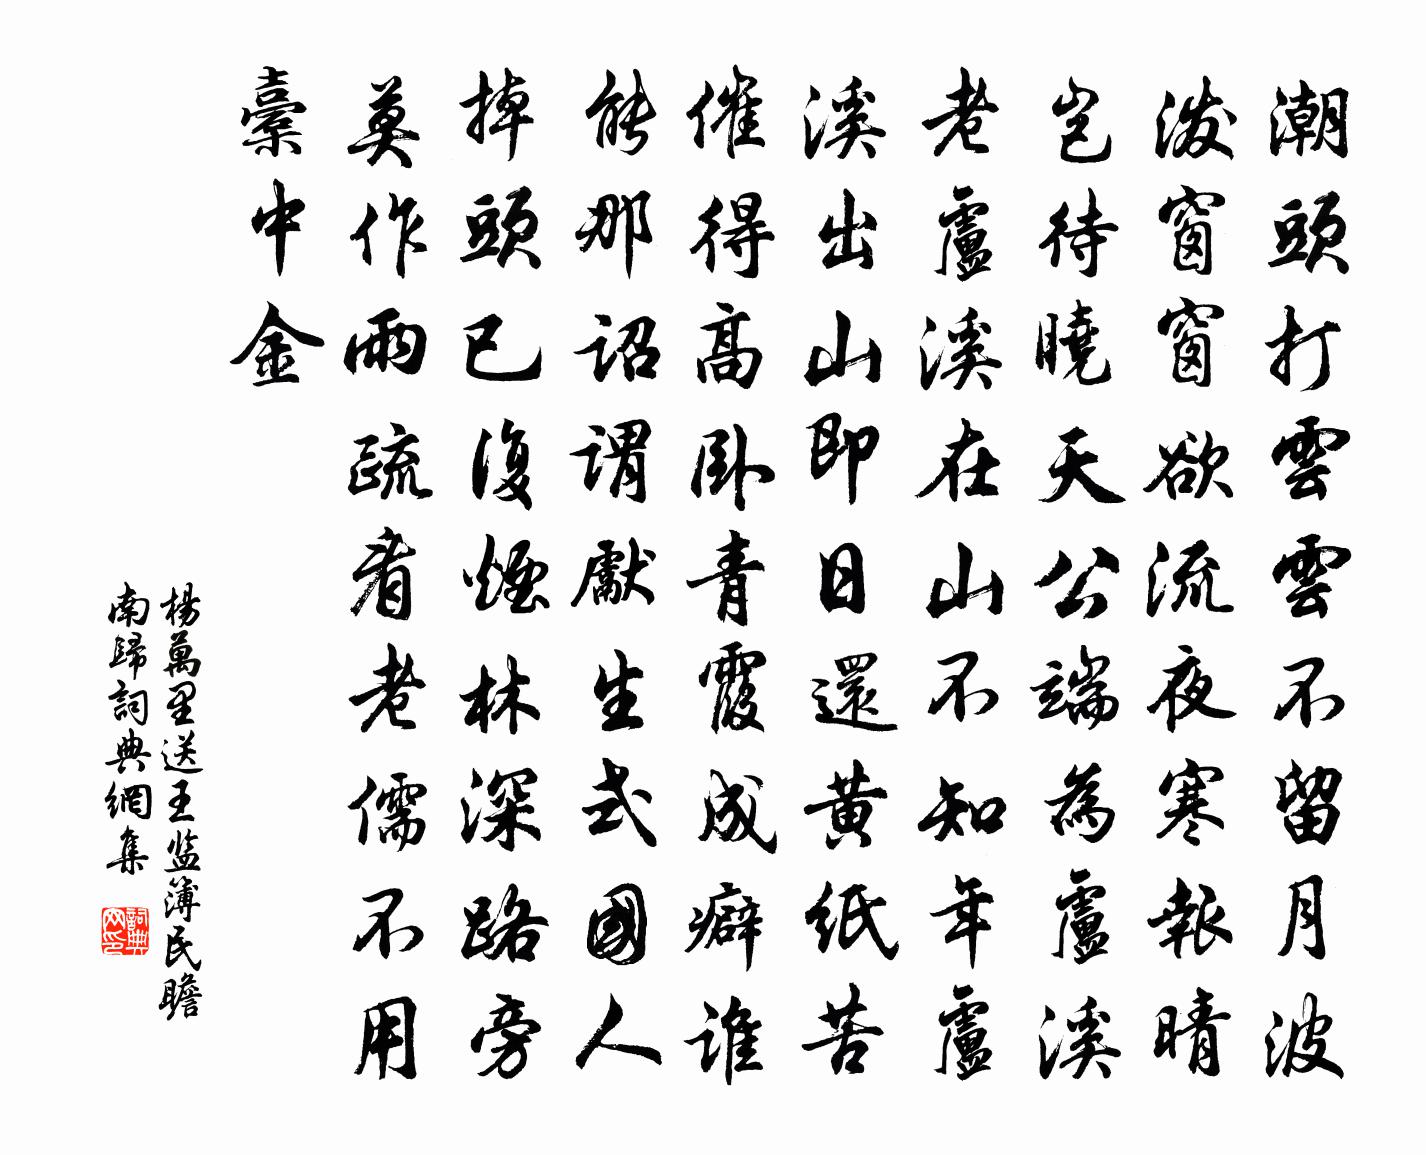 潮頭打雲雲不留月波
潑窗窗欲流夜寒報晴
豈待曉天公端為盧溪
老盧溪在山不知年盧
溪出山即日還黃紙苦
催得高卧青霞成癖誰
能那詔謂獻生式國人
掉頭已復煙林深路旁
莫作雨疏看老儒不用
橐中金
楊萬里送王监簿民瞻
南歸詞典網集
詞典
网印